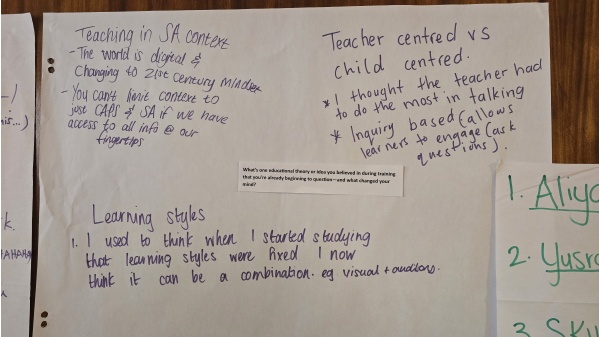 Teaching in SA context
- The world is digital &
Changing to 21st Century mindset
- You can't limit context to
just CAPS & SA if we have
access to all info @ our
fingertips
Teacher centred vs
child centred.
* I thought the teacher had
to do the most in talking
* Inquiry based (allows
learners to engage (ask
questions).
What's one educational theory or idea you believed in during training
that you're already beginning to question—and what changed your
mind?
Learning styles
1. I used to think when I started studying
that learning styles were fixed I now
think it can be a combination. eg visual + auditory.
1. Aliya
2. Yusra
3.